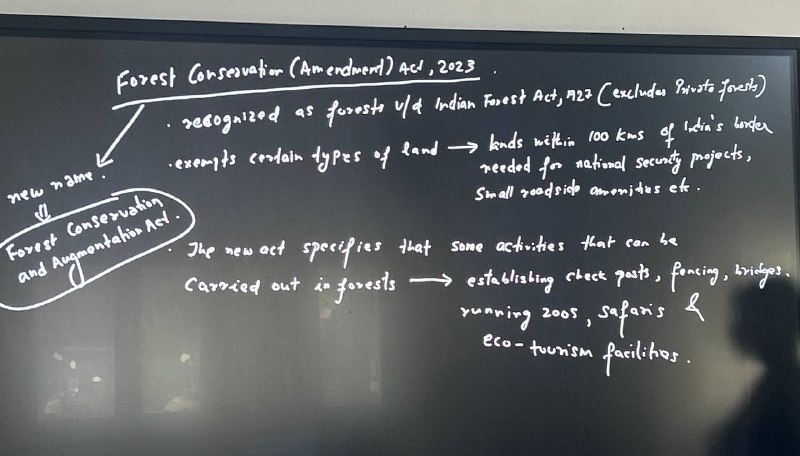 Forest Conservation (Amendment) Act, 2023.
• recognized as forests u/d Indian Forest Act, 1927 (excludes Private forests)
• exempts certain types of land → lands within 100 kms of India's border
needed for national security projects,
Small roadside amenities etc.
new name.
⇓
Forest Conservation
and Augmentation Act.
• The new act specifies that some activities that can be
Carried out in forests → establishing check posts, fencing, bridges.
running zoos, safaris &
eco-tourism facilities.